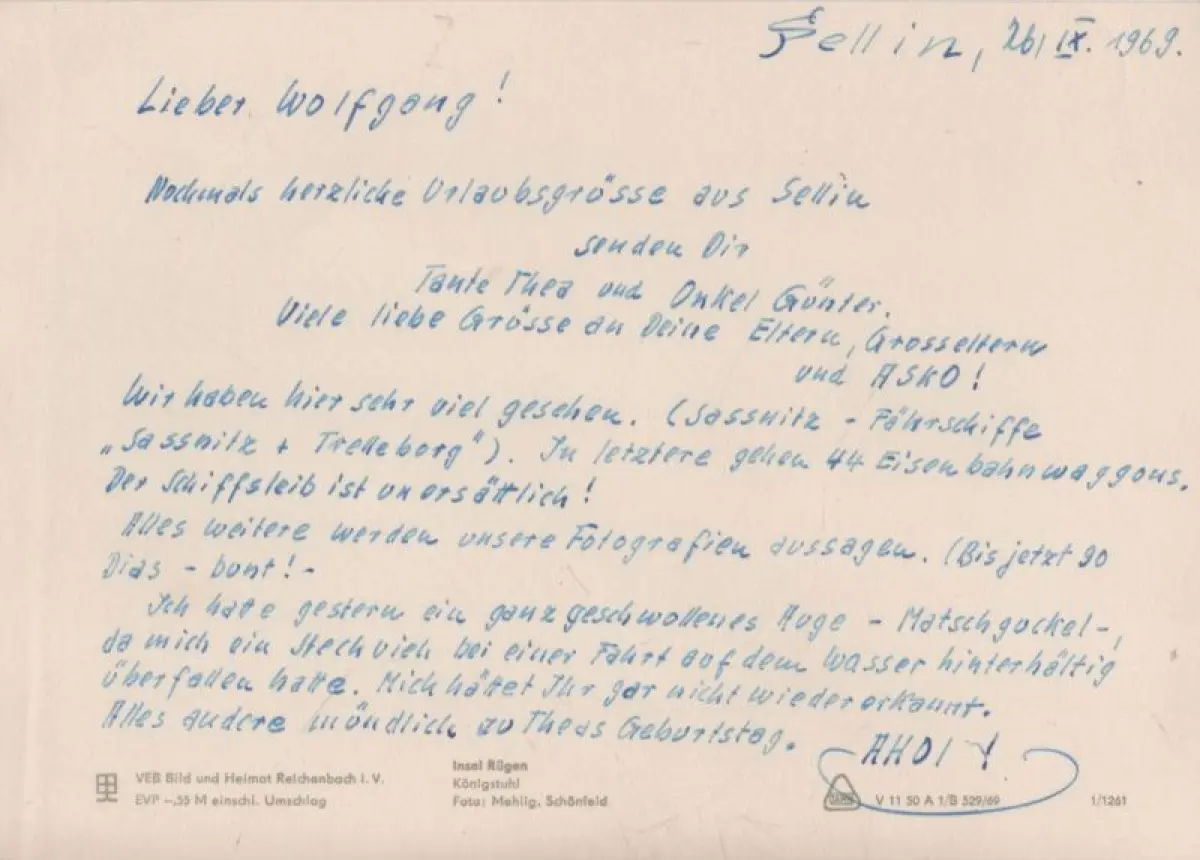 Sellin, 26/IX. 1969.
Lieber Wolfgang!
Nochmals herzliche Urlaubsgrüsse aus Sellin
senden Dir
Tante Thea und Onkel Günter.
Viele liebe Grüsse an Deine Eltern, Grosseltern
und ASKO!
Wir haben hier sehr viel gesehen. (Sassnitz - Fährschiffe
„Sassnitz + Trelleborg"). In letztere gehen 44 Eisenbahnwaggons.
Der Schiffsleib ist unersättlich!
Alles weitere werden unsere Fotografien aussagen. (Bis jetzt 90
Dias - bunt! -
Ich hatte gestern ein ganz geschwollenes Auge - Matschguckel-,
da mich ein Stechvieh bei einer Fahrt auf dem Wasser hinterhältig
überfallen hatte. Mich hättet Ihr gar nicht wiedererkannt.
Alles andere mündlich zu Theas Geburtstag.
AHOI!
VEB Bild und Heimat Reichenbach i. V.
EVP -,55 M einschl. Umschlag
Insel Rügen
Königstuhl
Foto: Mehlig, Schönfeld
V 11 50 A 1/B 529/69
1/1261